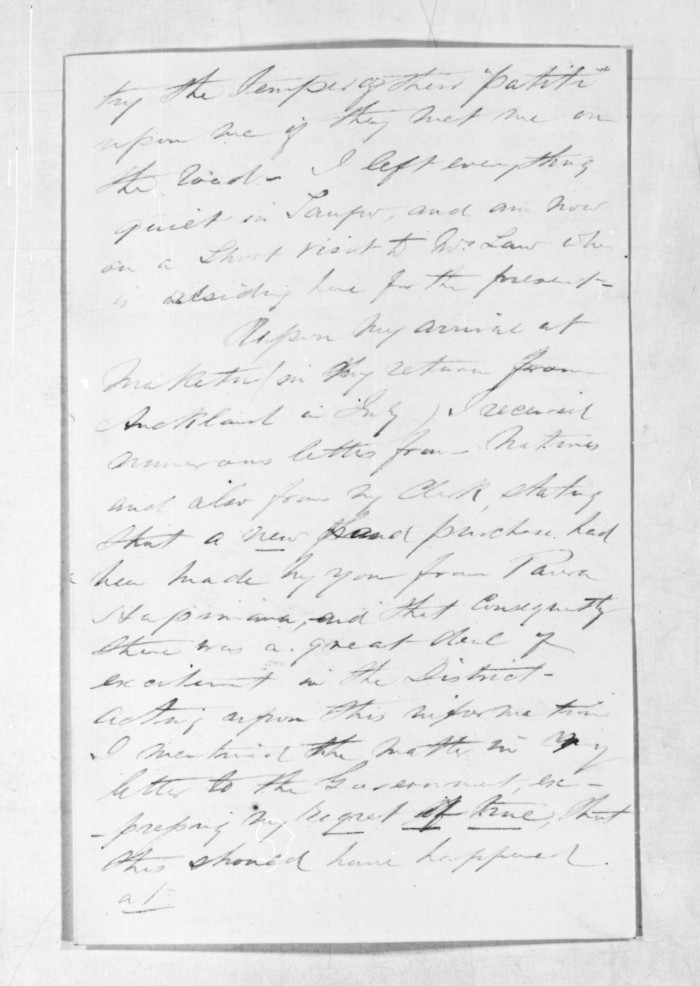 try the temper of their "patiti"
upon me if they met me on
the road - I left everything
quiet in Taupo, and am now
on a short visit to Mr Law who
is residing here for the present -
Upon my arrival at
Maketu (on my return from
Auckland in July) I received
numerous letters from Natives
and also from my Clerk, stating
that a new land purchase had
been made by you from Paora
Hapimana, and that Consequently
there was a great deal of
excitement in the District -
Acting upon this information
I mentioned the matter in my
letter to the Government, ex-
-pressing my regret if true, that
this should have happened
at